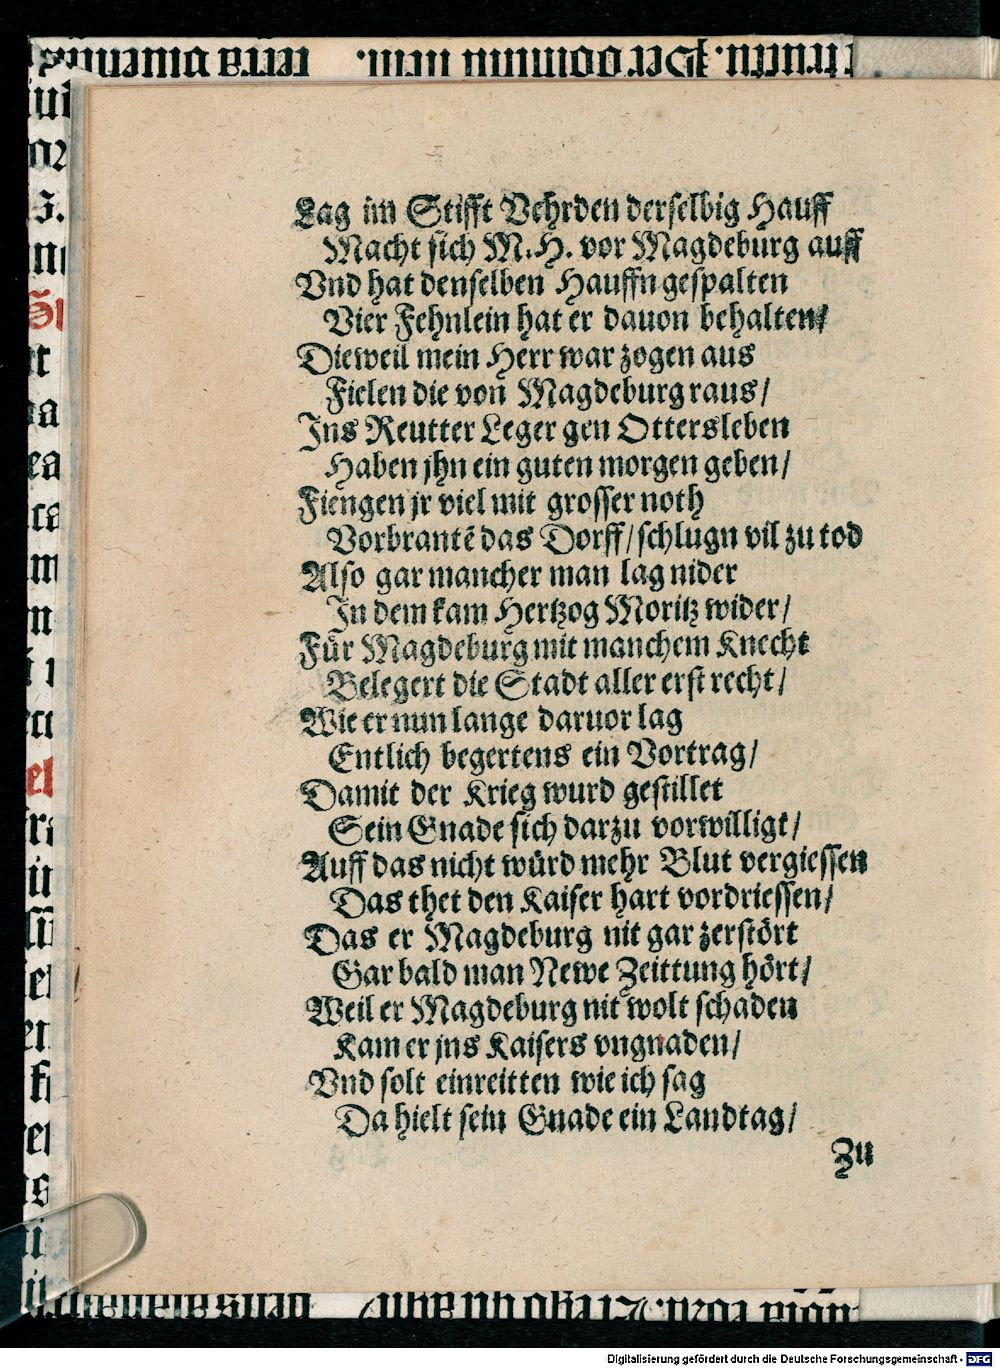 Lag im Stifft Vehrden derselbig Hauff
Macht sich M. H. vor Magdeburg auff
Vnd hat denselben Hauffn gespalten
Vier Fehnlein hat er dauon behalten/
Dieweil mein Herr war zogen aus
Fielen die von Magdeburg raus/
Ins Reutter Leger gen Ottersleben
Haben jhn ein guten morgen geben/
Fiengen jr viel mit grosser noth
Vorbrantē das Dorff/ schlugn vil zu tod
Also gar mancher man lag nider
In dem kam Hertzog Moritz wider/
Für Magdeburg mit manchem Knecht
Belegert die Stadt aller erst recht/
Wie er nun lange daruor lag
Entlich begertens ein Vortrag/
Damit der Krieg wurd gestillet
Sein Gnade sich darzu vorwilligt/
Auff das nicht würd mehr Blut vergiessen
Das thet den Kaiser hart vordriessen/
Das er Magdeburg nit gar zerstört
Gar bald man Newe Zeittung hört/
Weil er Magdeburg nit wolt schaden
Kam er jns Kaisers vngnaden/
Vnd solt einreitten wie ich sag
Da hielt sein Gnade ein Landtag/
Zu
Digitalisierung gefördert durch die Deutsche Forschungsgemeinschaft - DFG